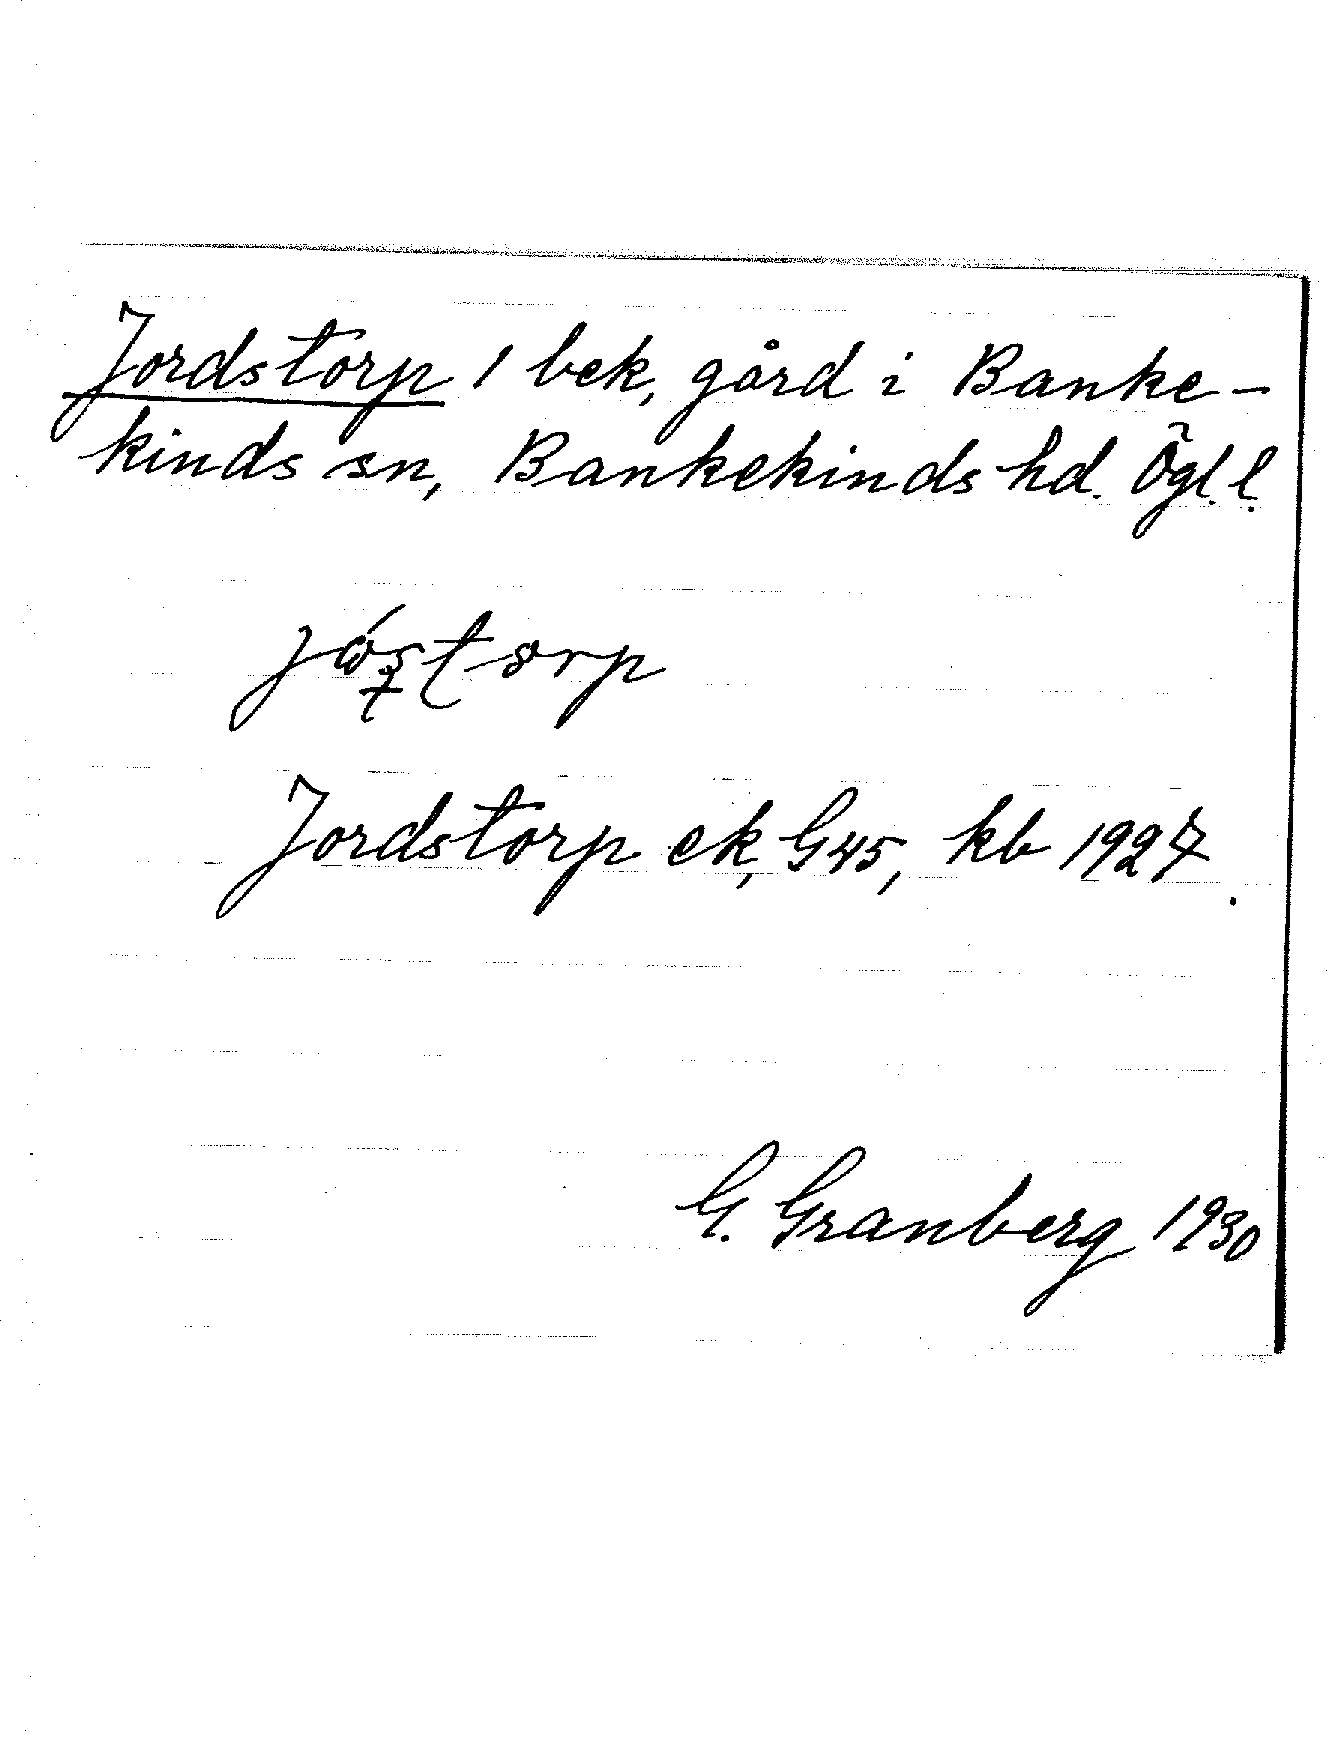 Jordstorp 1 bek, gård i Banke-
kinds sn, Bankekinds hd. Ögl. l.
Jordstorp ek, G45, kb 1927.
G. Granberg 1930